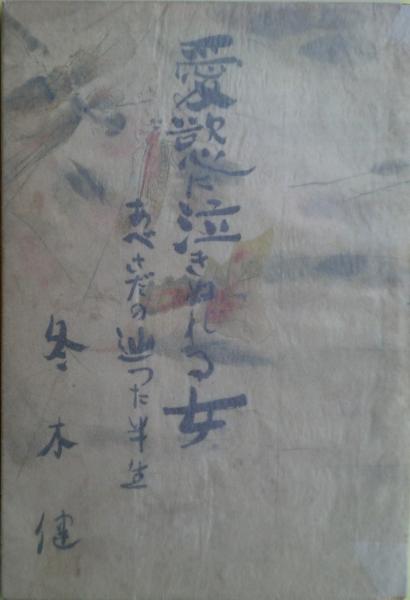 愛慾に泣きぬれる女
あべさだの辿つた半生
冬木健